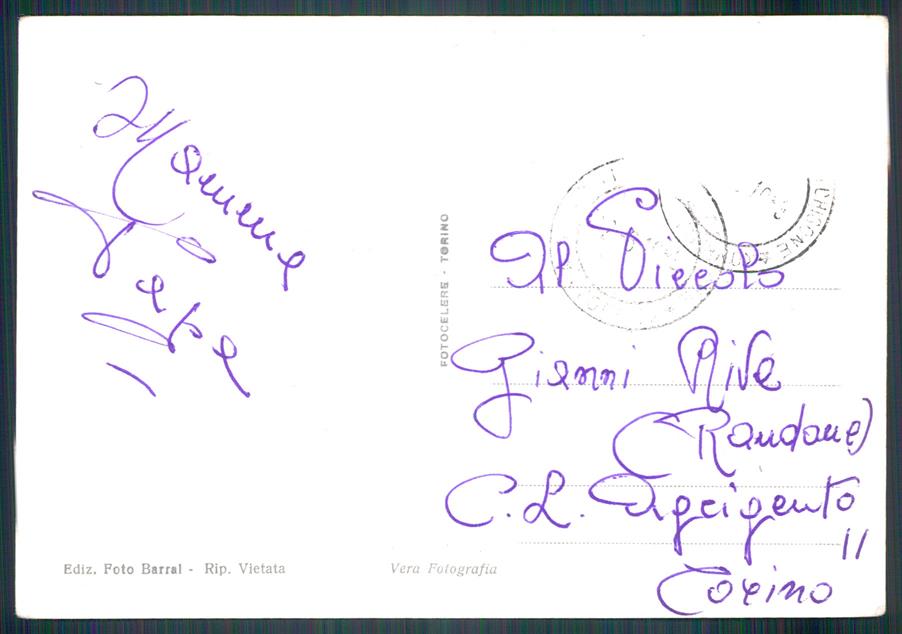 Mamma
Papa
FOTOCELERE - TORINO
Al Piccolo
Gianni Riva
(Randone)
C. L. Agrigento
11
Torino
Ediz. Foto Barral - Rip. Vietata
Vera Fotografia